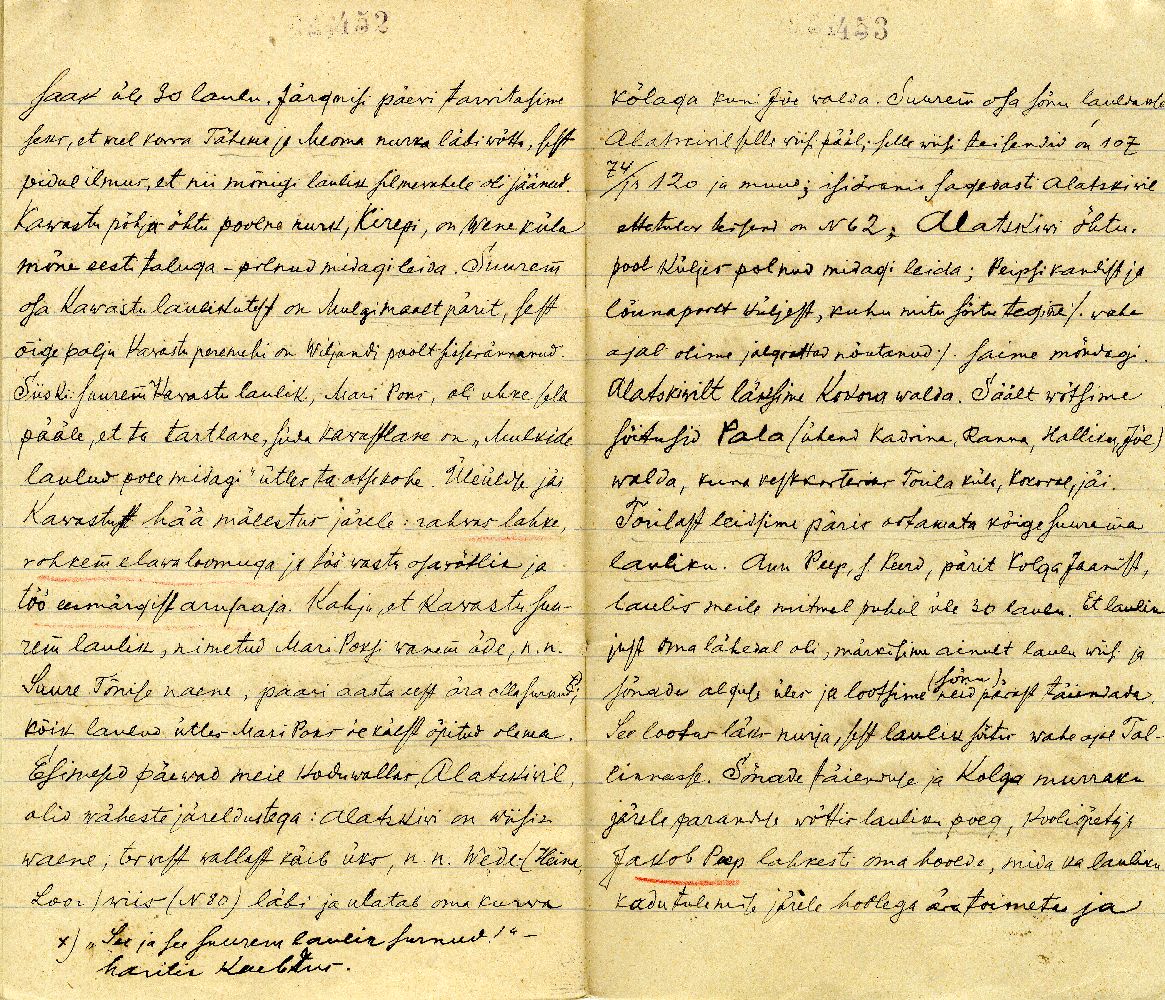 452
saak üle 30 laulu. Järgmisi päevi tarvitasime
seks, et veel korra Tähema ja Meoma nurka läbi wõtta, sest
pidul ilmus, et nii mõnigi laulik silmewahele oli jäänud.
Kawastu põhja õhtu poolne nurk, Kirepi, on Wene küla
mõne eesti taluga – polnud midagi leida. Suurem̄
osa Kawastu laulikutest on Mulgimaalt pärit, sest
õige palju Kawastu peremehi on Wiljandi poolt sisserännanud.
Siiski suurem̄ Kawastu laulik, Mari Poks, oli uhke selle
pääle, et ta tartlane, süda kawastlane on „Mulkide
laulud pole midagi" ütles ta otsekohe. Üleüldse jäi
Kawastust hää mälestus järele: rahwas lahke,
rohkem̄ elawaloomuga ja töö wastu osawõtlik ja
töö eesmärgist arusaaja. Kahju, et Kawastu suu-
rem̄ laulik, nimetud Mari Poksi wanem̄ õde, n.n.
Suure Tõnise naene, paari aasta eest ära olla surnud x);
kõik laulud ütles Mari Poks õe käest õpitud olema.
Esimesed päewad meie koduwallas, Alatskiwil,
olid wäheste järeldustega: Alatskiwi on wiisis
waene, terwest wallast käib üks, n.n. Wede- (Heina,
Loo) wiis (N 80) läbi ja ulatab oma kurwa
x) „See ja see suurem laulik surnud!" –
harilik kaebtus.
453
kõlaga kuni Jõe walda. Suurem̄ osa sõnu lauldakse
Alatskiwil selle wiisi pääl; selle wiisi teisendid on 107
74/ja 120 ja muud; isiäranis sagedasti Alatskiwil
ettetulew teisend on N 62; Alatskiwi õhtu-
pool küljes polnud midagi leida; Peipsi kandist ja
lõunapoolt küljest, kuhu mitu sõitu tegime /. wahe
ajal olime jalgrattad nõutanud /. saime mõndagi.
Alatskiwilt läksime Kokora walda. Säält wõtsime
sõitusid Pala (ühend Kadrina, Ranna, Halliku, Jõe)
walda, kuna keskkorteriks Toila küla, Kokoras, jäi.
Toilast leidsime päris ootamata kõige suurema
lauliku. Ann Peep, s Peerd, pärit Kolga Jaanist,
laulis meile mitmel puhul üle 30 laulu. Et laulik
just oma lähedal oli, märkisime ainult laulu wiisi ja
sõnade alguse üles ja lootsime (sõnu) neid pärast täiendada.
See lootus läks nurja, sest laulik sõitis wahe ajal Tal-
linnasse. Sõnade täienduse ja Kolga murraku
järele paranduse wõttis lauliku poeg, kooliõpetaja
Jakob Peep lahkesti oma hoolde, mida ka lauliku
kodutulemise järele hoolega ära toimetas ja